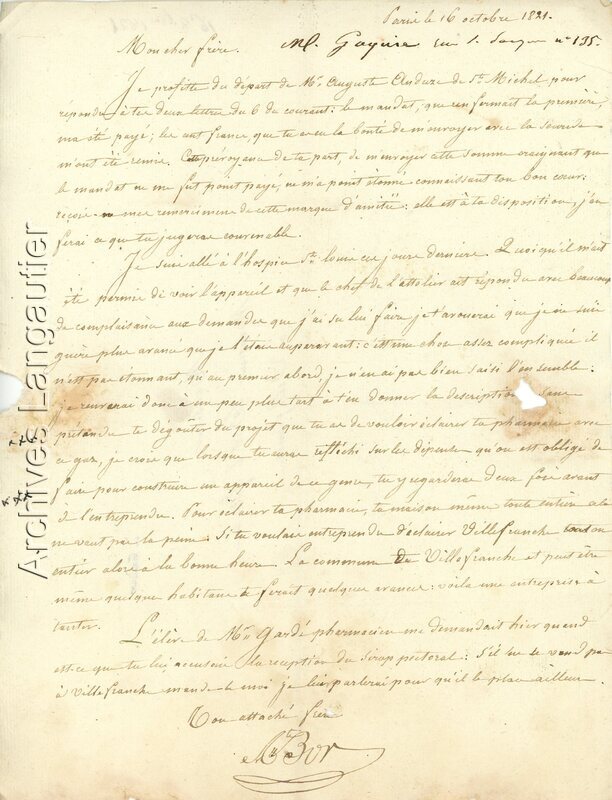 Paris le 16 octobre 1821.
Mon cher frère.
Je profite du départ de Mr. Auguste Andure de St. Michel pour
répondre à tes deux lettres du 6 du courant. le mandat, que renfermait la première,
m'a été payé; les cent francs, que tu as eu la bonté de m'envoyer avec la seconde
m'ont été remis. Cette prévoyance de ta part, de m'envoyer cette somme craignant que
le mandat ne me fut point payé, ne m'a point étonné connaissant ton bon cœur:
reçois mes remerciments de cette marque d'amitié: elle est à ta disposition, j'en
ferai ce que tu jugeras convenable.
Je suis allé à l'hospice St. louis ces jours derniers. Quoiqu'il m'ait
été permis de voir l'appareil et que le chef de l'attelier ait répondu avec beaucoup
de complaisance aux demandes que j'ai su lui faire je t'avouerai que je ne suis
guère plus avancé que je l'étais auparavant: c'est une chose assez compliquée il
n'est pas étonnant, qu'au premier abord, je n'en ai pas bien saisi l'ensemble:
je renverrai donc à un peu plus tart à t'en donner la description. Sans
prétendre te dégouter du projet que tu as de vouloir éclairer ta pharmacie avec
ce gaz, je crois que lorsque tu auras réfléchi sur les dépenses qu'on est obligé de
faire pour construire un appareil de ce genre, tu y regarderas deux fois avant
de l'entreprendre. Pour éclairer ta pharmacie, ta maison même toute entière cela
ne vaut pas la peine. Si tu voulais entreprendre d'éclairer Villefranche tout en
entier alors à la bonne heure. La commune de Villefranche et peut être
même quelques habitans te ferait quelques avances: voila une entreprise à
tenter.
L'élève de Mr. Gardé pharmacien me demandait hier quand
est-ce que tu lui accuserais la réception du sirop pectoral: S'il ne se vend pas
à Villefranche mande-le moi je lui parlerai pour qu'il le place ailleurs.
Ton attaché frère
Bor
Archives Langautier